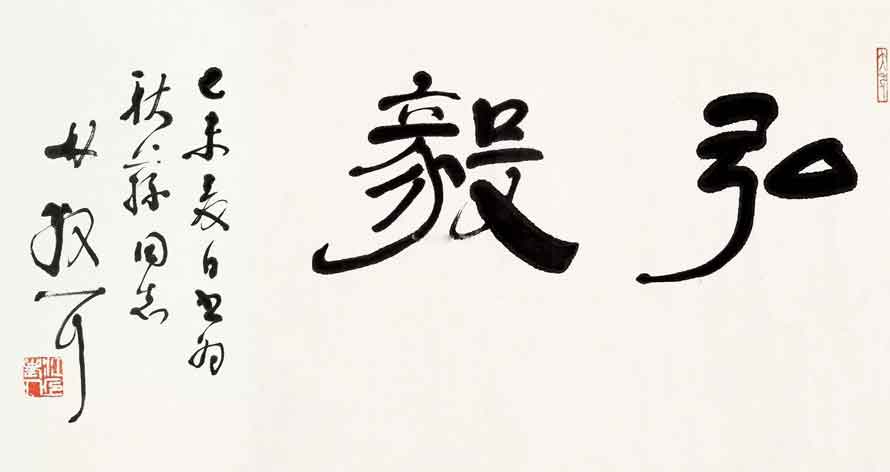 弘毅
己未夏日书为
秋蓀同志
林散耳